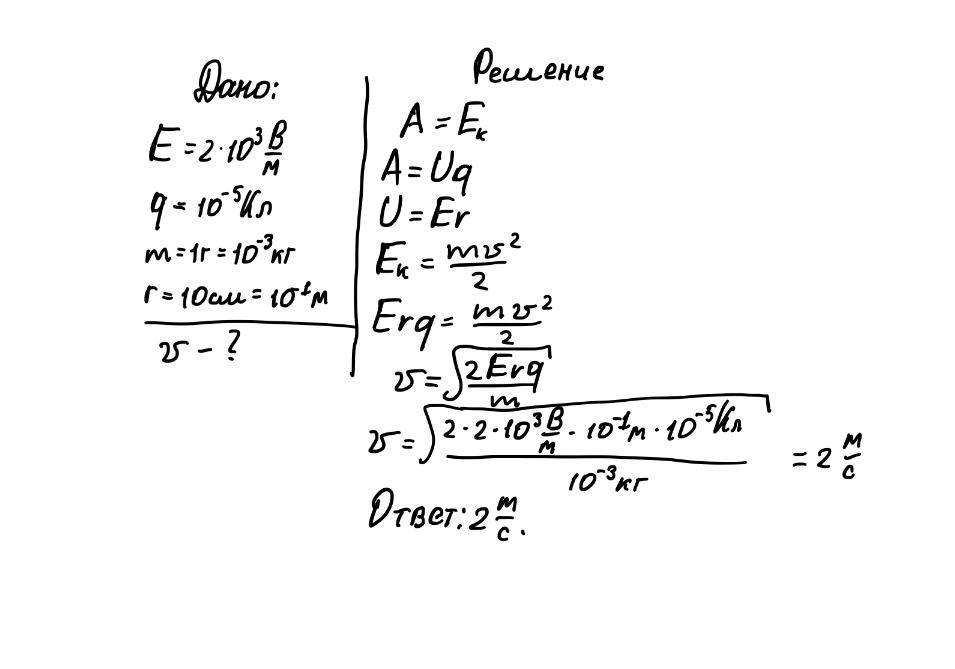 Дано:
E = 2·10³ В/м
q = 10⁻⁵ Кл
m = 1г = 10⁻³ кг
r = 10см = 10⁻¹ м
v - ?
Решение
A = Eₖ
A = Uq
U = Er
Eₖ = mv²/2
Erq = mv²/2
v = √(2Erq/m)
v = √(2·2·10³ В/м · 10⁻¹ м · 10⁻⁵ Кл / 10⁻³ кг) = 2 м/с
Ответ: 2 м/с.